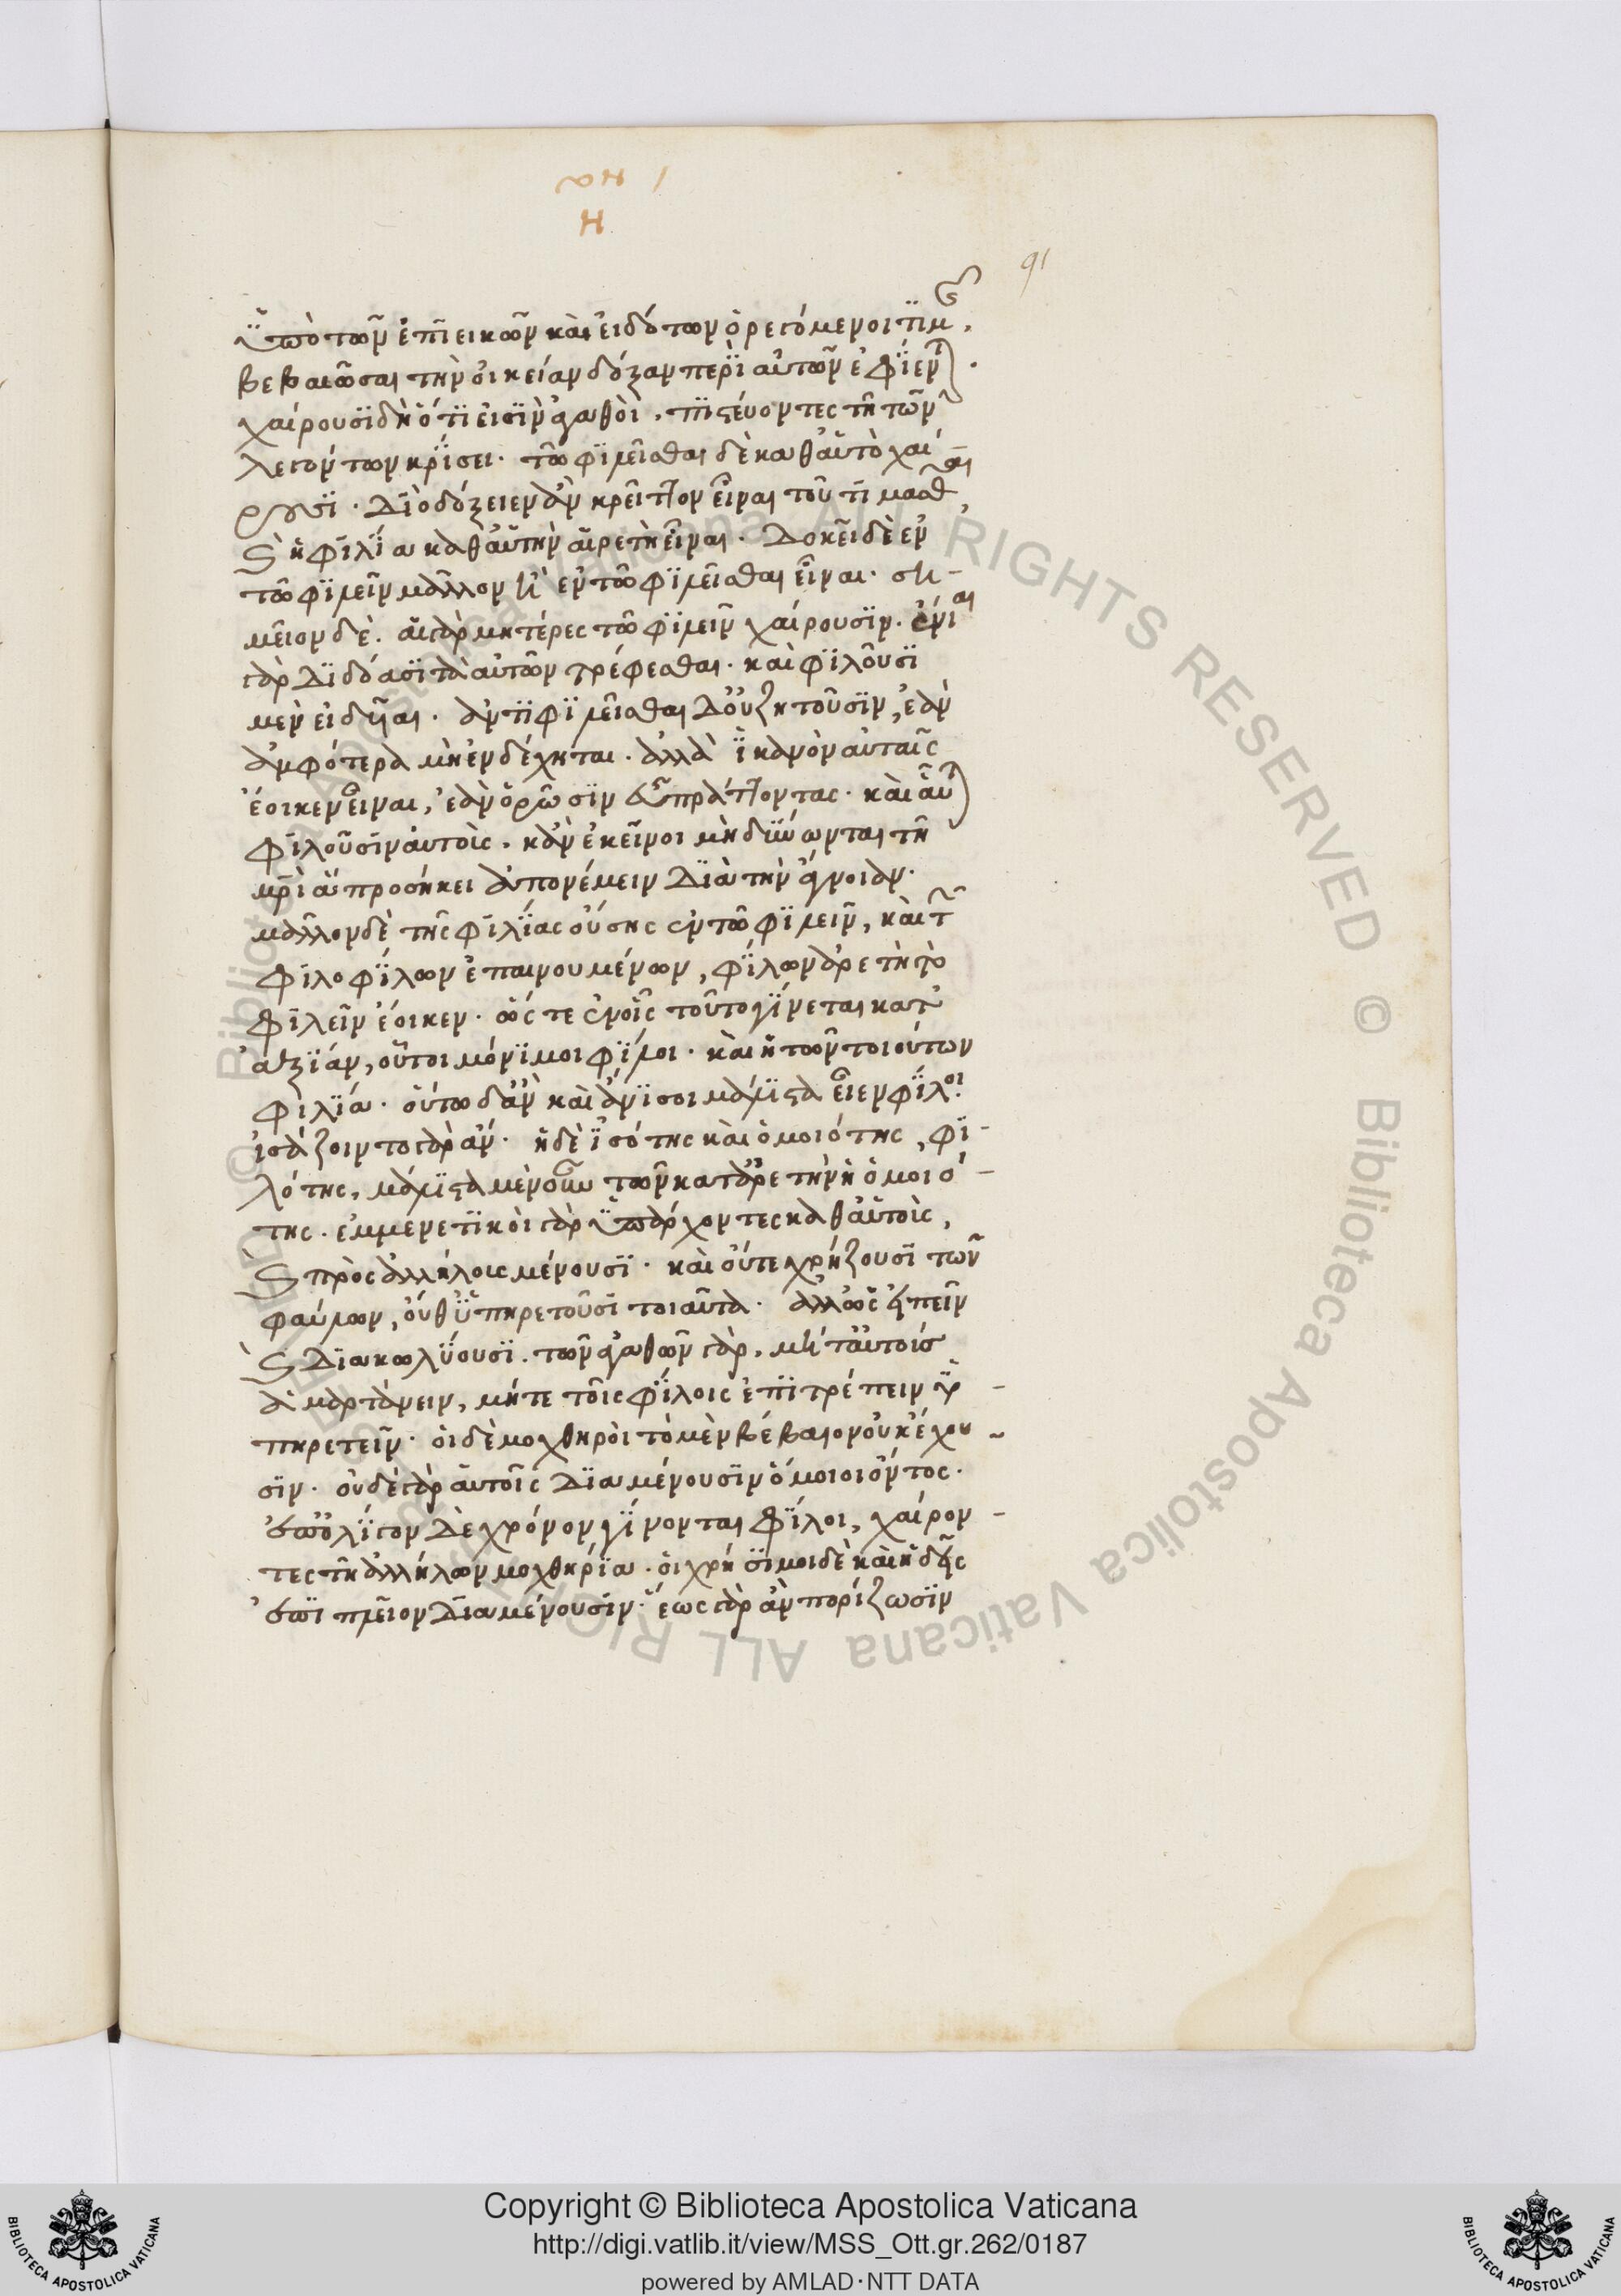 Η
91
ὑπὸ τῶν ἐπιεικῶν καὶ εἰδότων ὀρεγόμενοι τιμῆς,
βεβαιῶσαι τὴν οἰκείαν δόξαν περὶ αὐτῶν ἐφίενται.
χαίρουσι δὴ ὅτι εἰσὶν ἀγαθοὶ, πιστεύοντες τῇ τῶν
λεγόντων κρίσει. τῷ φιλεῖσθαι δὲ καθ' αὑτὸ χαί-
ρουσι. Διὸ δόξειεν ἂν κρεῖττον εἶναι τοῦ τιμᾶσθαι
καὶ ἡ φιλία καθ' αὑτὴν αἱρετὴ εἶναι. Δοκεῖ δὲ ἐν
τῷ φιλεῖν μᾶλλον ἢ ἐν τῷ φιλεῖσθαι εἶναι. ση-
μεῖον δὲ. αἱ γὰρ μητέρες τῷ φιλεῖν χαίρουσιν. ἔνιαι
γὰρ διδόασι τὰ αὑτῶν τρέφεσθαι. καὶ φιλοῦσι
μὲν εἰδυῖαι. ἀντιφιλεῖσθαι δ' οὐ ζητοῦσιν, ἐὰν
ἀμφότερα μὴ ἐνδέχηται. ἀλλὰ ἱκανὸν αὐταῖς
ἔοικεν εἶναι, ἐὰν ὁρῶσιν εὖ πράττοντας. καὶ αὐταὶ
φιλοῦσιν αὐτοὺς, κἂν ἐκεῖνοι μηδὲν ὧν ται τῇ
μητρὶ ἃ προσήκει ἀπονέμειν διὰ τὴν ἄγνοιαν.
μᾶλλον δὲ τῆς φιλίας οὔσης ἐν τῷ φιλεῖν, καὶ τῶν
φιλοφίλων ἐπαινουμένων, φίλων ἀρετὴ τὸ
φιλεῖν ἔοικεν. ὥστε ἐν οἷς τοῦτο γίνεται κατ'
ἀξίαν, οὗτοι μόνιμοι φίλοι. καὶ ἡ τῶν τοιούτων
φιλία. οὕτω δ' ἂν καὶ ἄνισοι μάλιστα εἶεν φίλοι.
ἰσάζοιντο γὰρ ἄν. ἡ δὲ ἰσότης καὶ ὁμοιότης, φι-
λότης, μάλιστα μὲν οὖν τῶν κατ' ἀρετὴν ἡ ὁμοιό-
της. ἐμμενετικοὶ γὰρ ὑπάρχοντες καθ' αὑτοὺς,
καὶ πρὸς ἀλλήλους μένουσι. καὶ οὔτε χρήζουσι τῶν
φαύλων, οὔθ' ὑπηρετοῦσι τοιαῦτα. ἀλλ' ὡς εἰπεῖν
καὶ διακωλύουσι. τῶν ἀγαθῶν γὰρ, μήτ' αὐτοὺς
ἁμαρτάνειν, μήτε τοῖς φίλοις ἐπιτρέπειν ὑ-
πηρετεῖν. οἱ δὲ μοχθηροὶ τὸ μὲν βέβαιον οὐκ ἔχου-
σιν. οὐδὲ γὰρ αὑτοῖς διαμένουσιν ὅμοιοι ὄντες.
ἐπ' ὀλίγον δὲ χρόνον γίνονται φίλοι, χαίρον-
τες τῇ ἀλλήλων μοχθηρίᾳ. οἱ χρήσιμοι δὲ καὶ ἡδεῖς
ἐπὶ πλεῖον διαμένουσιν. ἕως γὰρ ἂν πορίζωσιν
© Biblioteca Apostolica Vaticana ALL RIGHTS RESERVED © Biblioteca Apostolica Vaticana ALL RIGHTS RESERVED
Copyright © Biblioteca Apostolica Vaticana
http://digi.vatlib.it/view/MSS_Ott.gr.262/0187
powered by AMLAD·NTT DATA
BIBLIOTECA APOSTOLICA VATICANA
BIBLIOTECA APOSTOLICA VATICANA